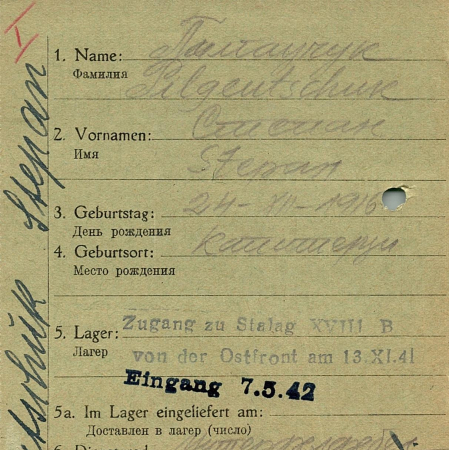 1. Name:
Фамилия
Pilgentschuk
2. Vornamen: Степан
Имя
Stepan
3. Geburtstag: 24-VII-1916
День рождения
4. Geburtsort:
Место рождения
5. Lager: Zugang zu Stalag XVIII B
Лагер von der Ostfront am 13.XI.41
Eingang 7.5.42
5a. Im Lager eingeliefert am:
Доставлен в лагер (число)
Stepan